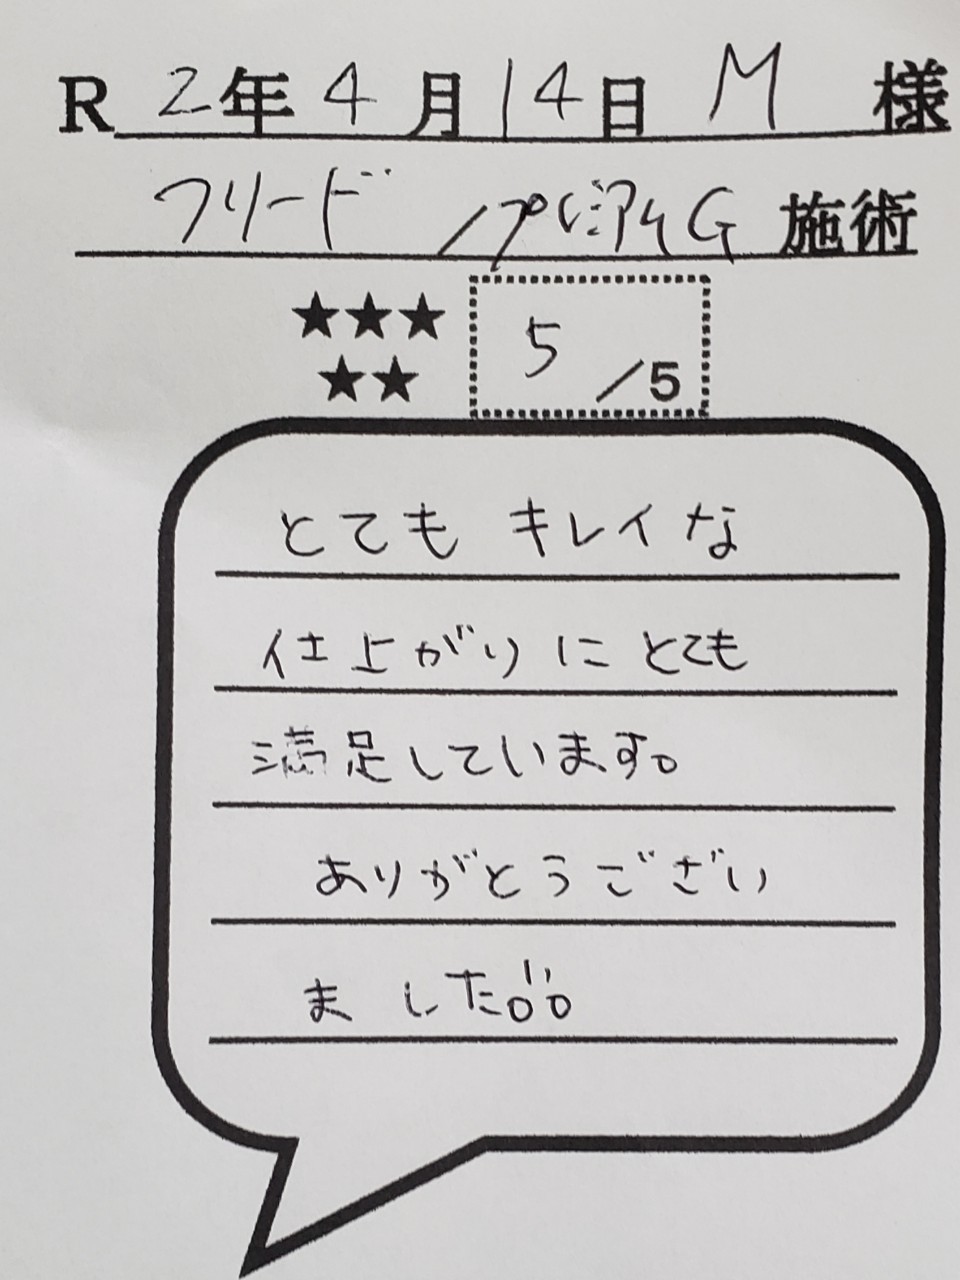 R 2年 4月 14日 M 様
フリード /プレミアムG 施術
★★★
★★
5 /5
とても キレイな
仕上がりに とても
満足しています。
ありがとうござい
ました!!